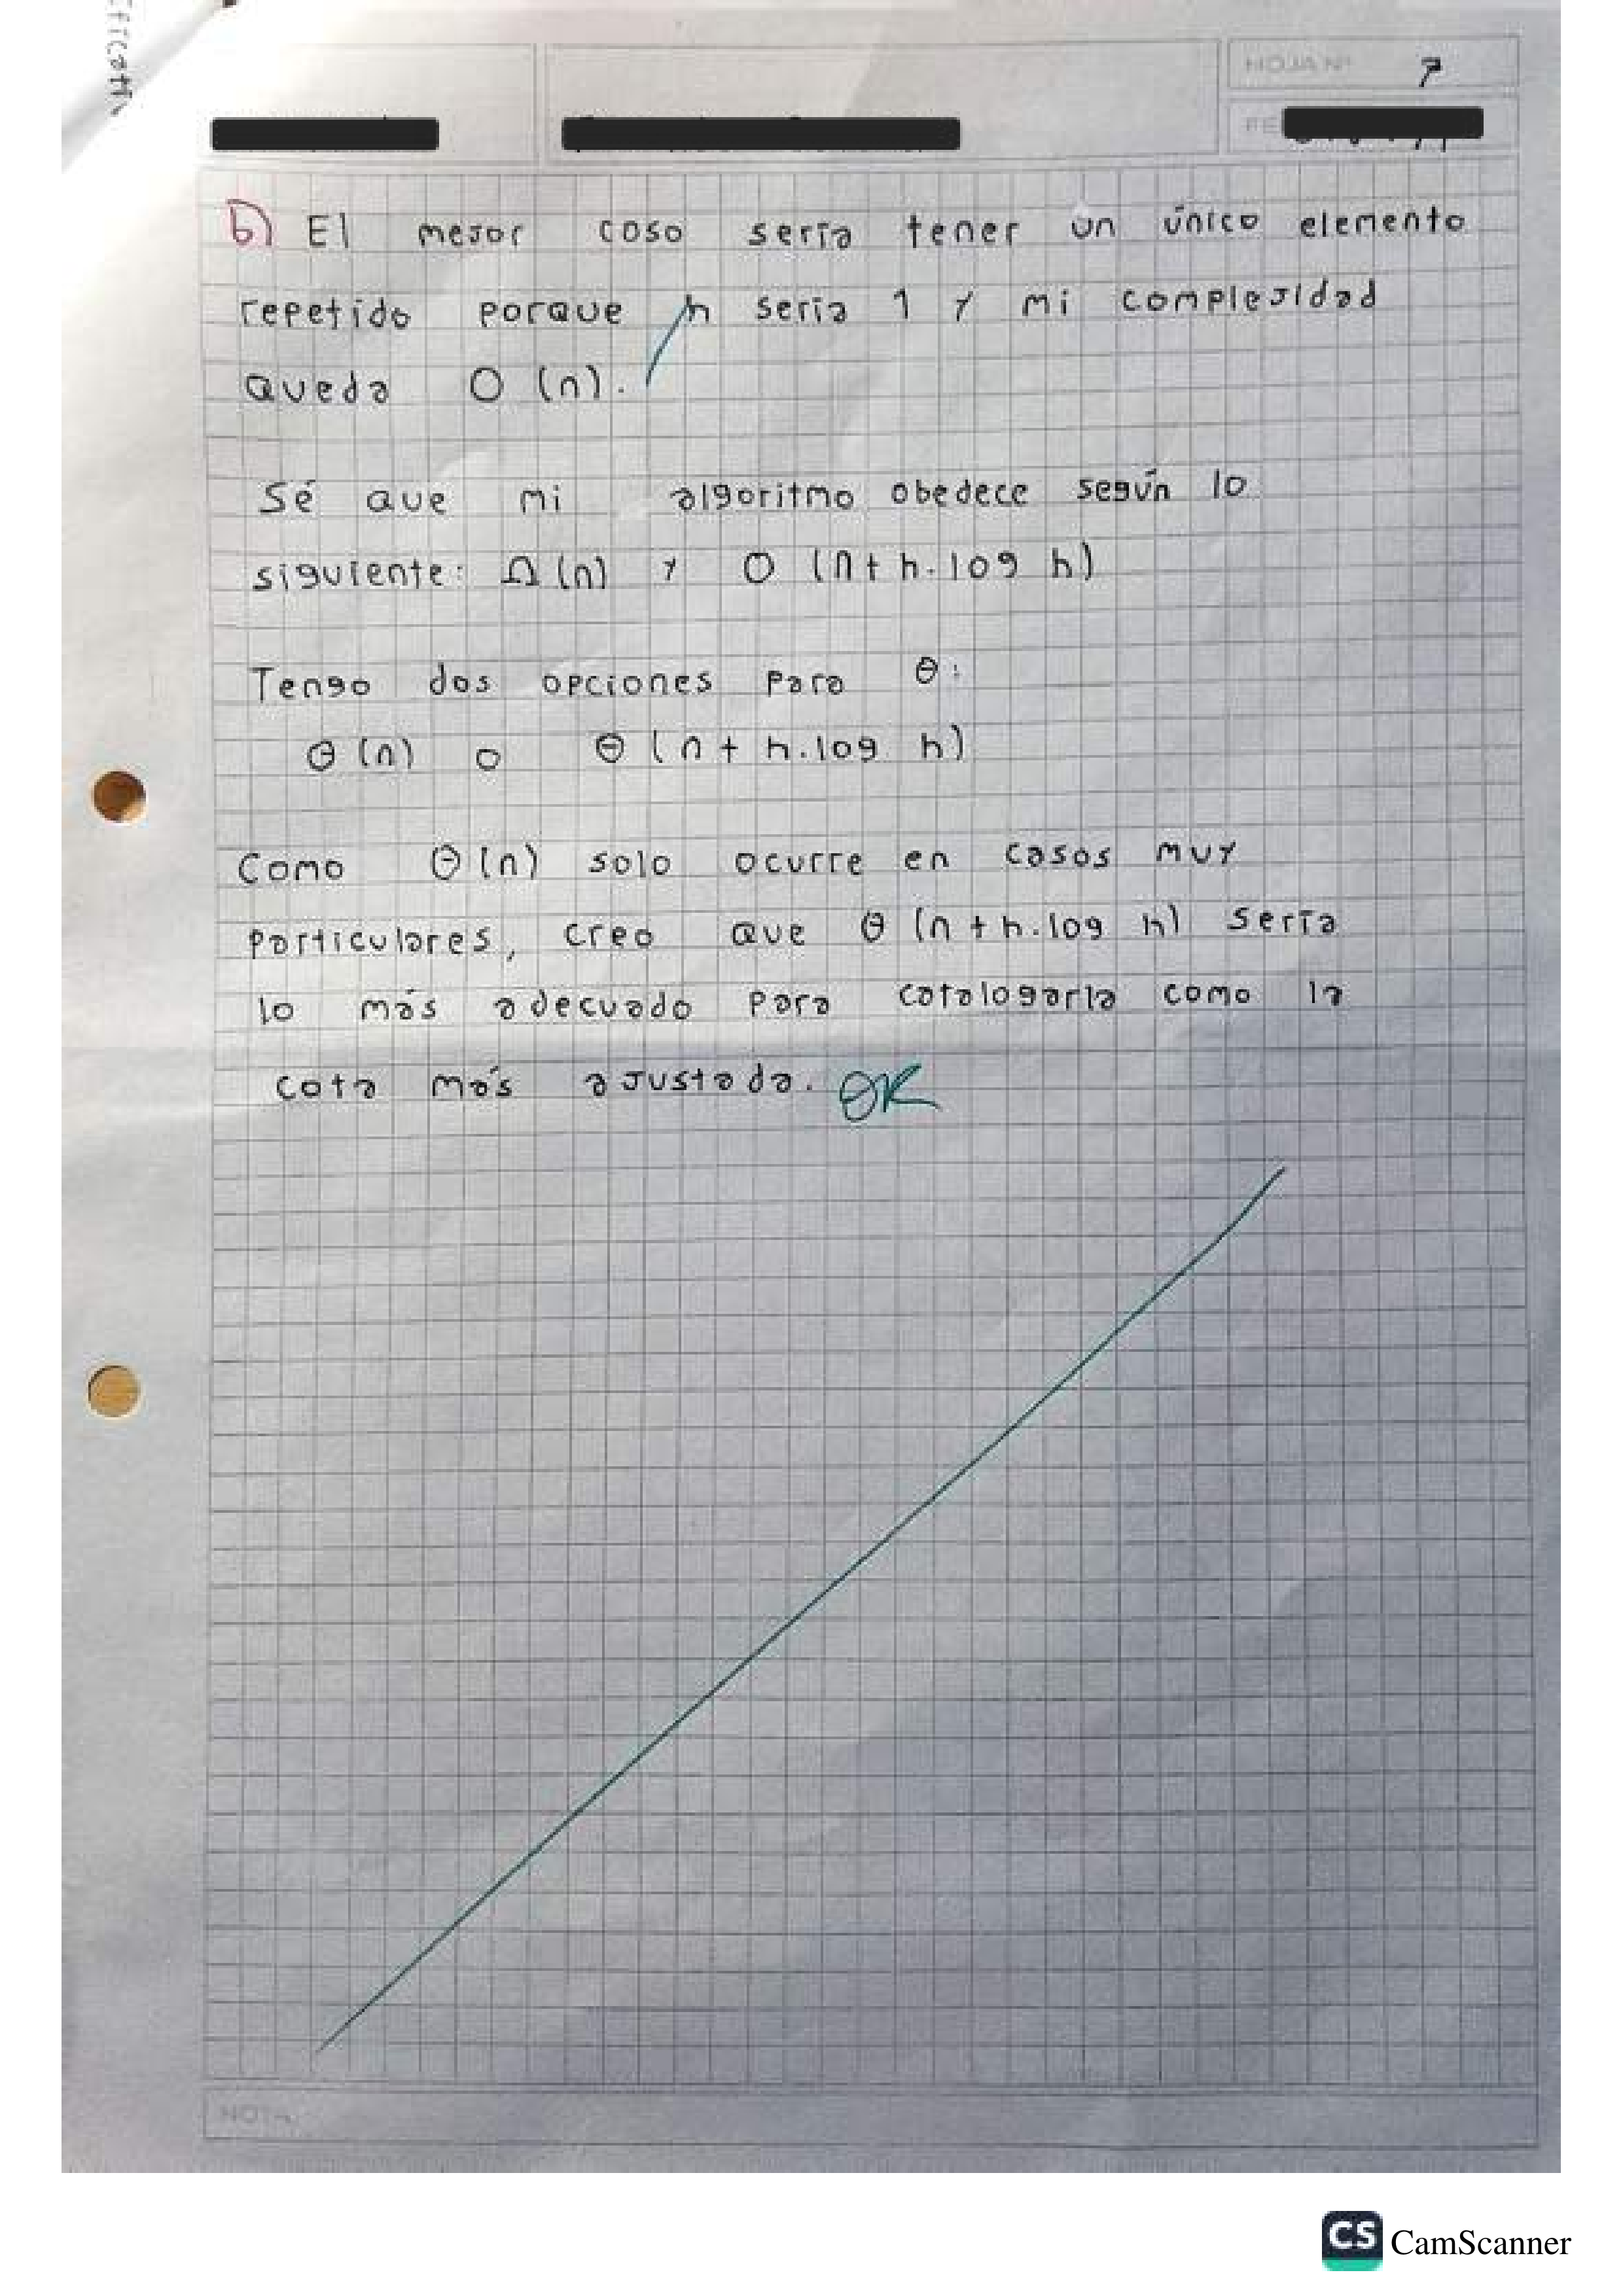 HOJA Nº 7
FE
b) El mejor caso sería tener un único elemento
repetido porque h sería 1 y mi complejidad
queda O (n).
Sé que mi algoritmo obedece según lo
siguiente: Ω (n) y O (n + h. log h)
Tengo dos opciones para Θ:
Θ (n) o Θ (n + h. log h)
Como Θ (n) solo ocurre en casos muy
particulares, creo que Θ (n + h. log h) sería
lo más adecuado para catalogarla como la
cota más ajustada. OK
NOTA
CS CamScanner